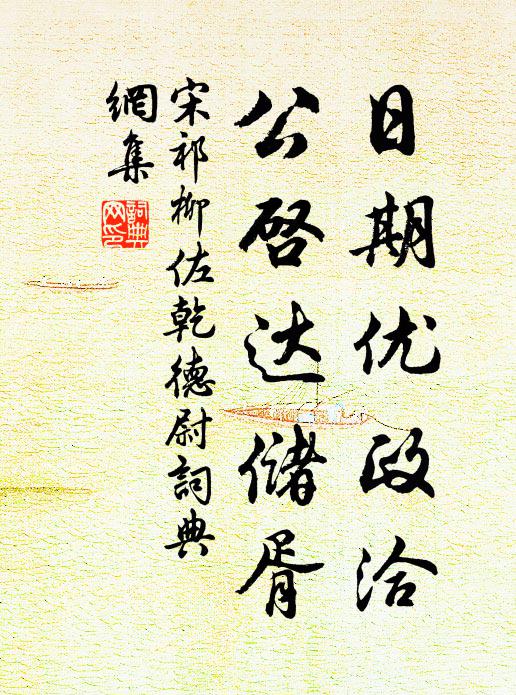 日期优政洽
公启达储胥
宋祁柳佐乾德尉詞典
網集
詞典
网印